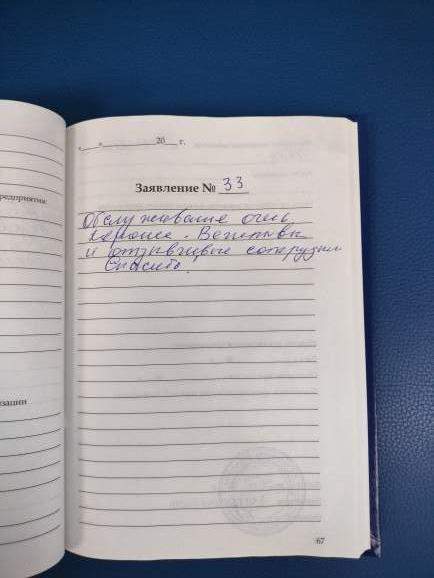 «___»____________20___ г.
Заявление № 33
редприятия:
Обслуживание очень
хорошее. Вежливые
и отзывчивые сотрудники
Спасибо.
изации
67